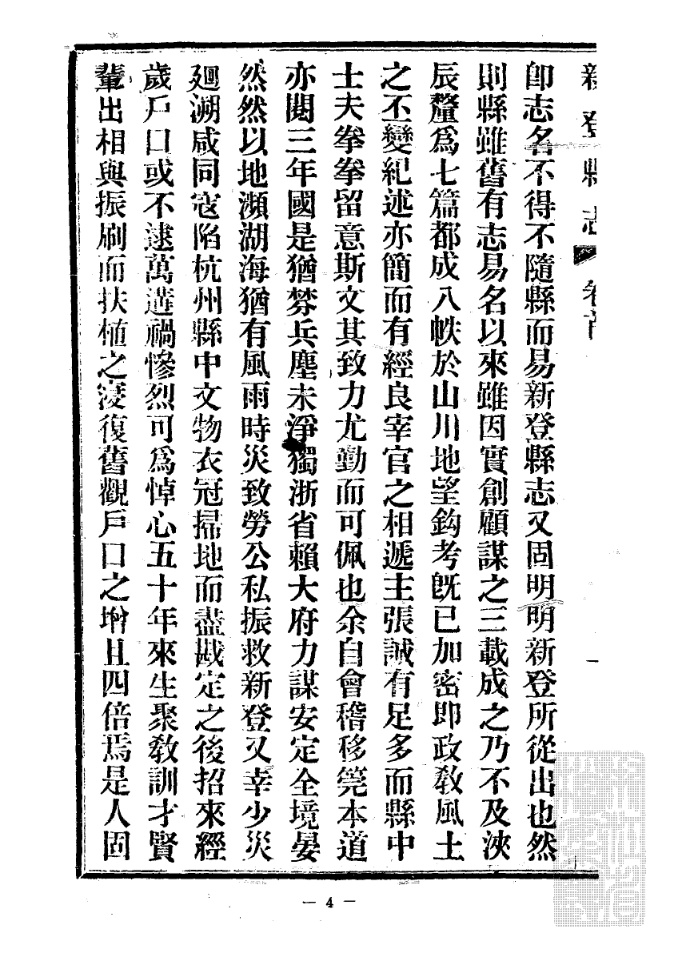 新登縣志 卷首 一
卽志名不得不隨縣而易新登縣志又固明明新登所從出也然
則縣雖舊有志易名以來雖因實創顧謀之三載成之乃不及浹
辰釐爲七篇都成八帙於山川地望鈎考旣已加密即政敎風土
之丕變紀述亦簡而有經良宰官之相遞主張誠有足多而縣中
士夫拳拳留意斯文其致力尤勤而可佩也余自會稽移筦本道
亦閱三年國是猶棼兵塵未淨獨浙省賴大府力謀安定全境晏
然然以地瀕湖海猶有風雨時災致勞公私振救新登又幸少災
廻溯咸同寇陷杭州縣中文物衣冠掃地而盡戡定之後招來經
歲戶口或不逮萬遘禍慘烈可爲悼心五十年來生聚敎訓才賢
輩出相與振刷而扶植之寖復舊觀戶口之增且四倍焉是人固
— 4 —